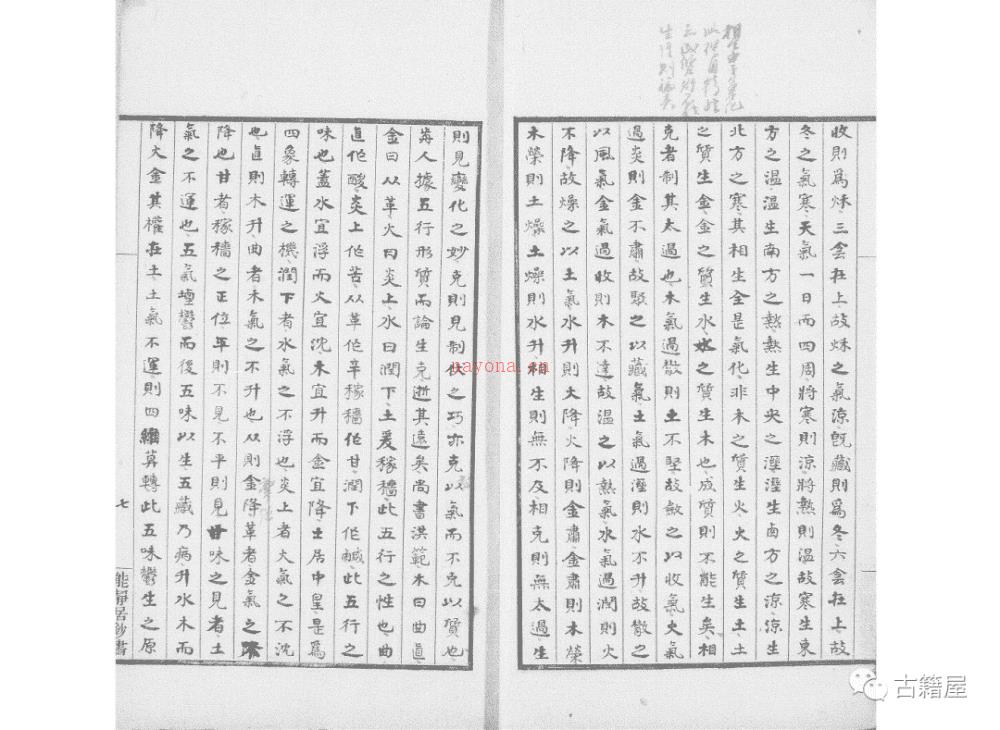 收則爲秌三雲在上故秌之氣涼旣藏則爲冬六雲在上故
冬之氣寒天氣一日而四周將寒則涼將熱則温故寒生東
方之温温生南方之熱熱生中央之溼溼生卥方之涼涼生
北方之寒其相生全是氣化非木之質生火火之質生土土
之質生金金之質生水水之質生木也成質則不能生矣相
克者制其太過也木氣過散則土不堅故斂之以收氣火氣
過炎則金不肅故聚之以藏氣土氣過溼則水不升故散之
以風氣金氣過收則木不達故温之以熱氣水氣過潤則火
不降故燥之以土氣水升則火降火降則金肅金肅則木榮
木榮則土燥土燥則水升相生則無不及相克則無太過生
則見變化之妙克則見制伏之巧亦克以氣而不克以質也
蒷人據五行形質而論生克逝其遠矣尚書洪範木曰曲直
金曰从革火曰炎上水曰潤下土爰稼穡此五行之性也曲
直作酸炎上作苦从革作辛稼穡作甘潤下作鹹此五行之
味也蓋水宜浮而火宜沈木宜升而金宜降土居中皇是爲
四象轉運之機潤下者水氣之不浮也炎上者火氣之不沈
也直則木升曲者木氣之不升也从則金降革者金氣之不
降也甘者稼穡之正位平則不見不平則見甘味之見者土
氣之不運也五氣堙鬱而後五味以生五藏乃病升水木而
降火金其權在土土氣不運則四維莫轉此五味鬱生之原
七
能靜居鈔書
nayona.cn
古籍屋